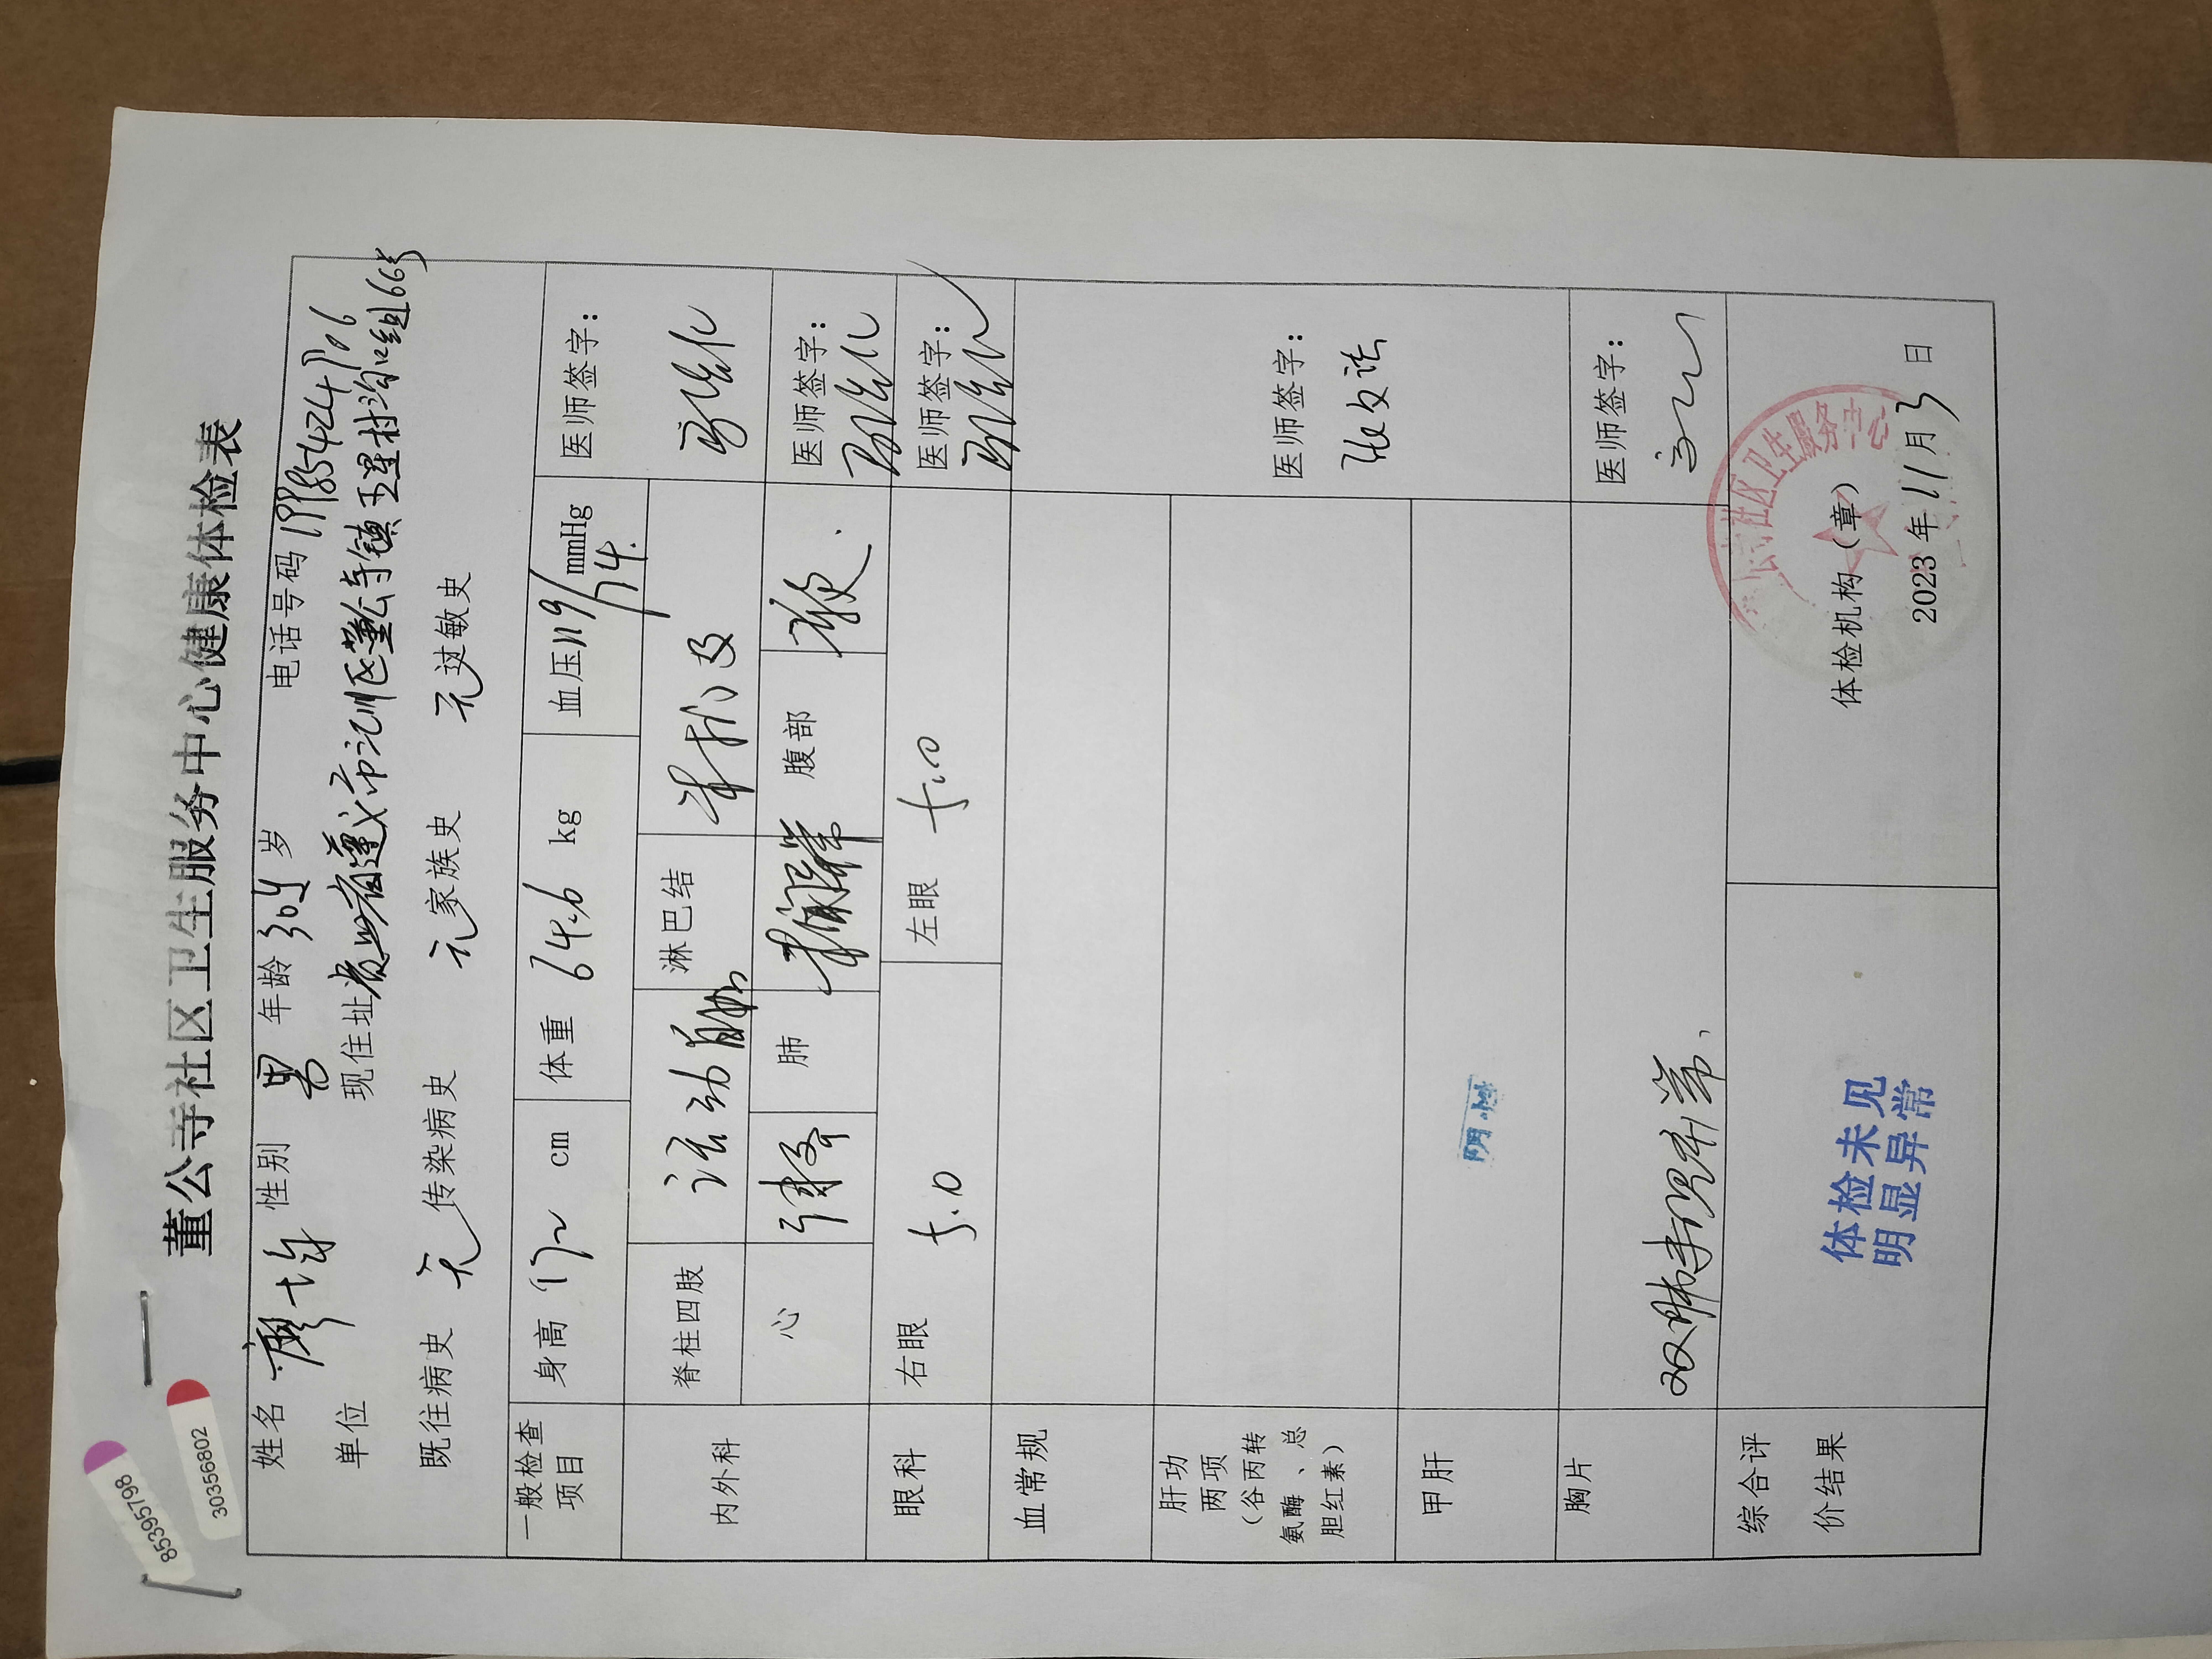 85395798
30356802
董公寺社区卫生服务中心健康体检表
姓名 廖均 性别 男 年龄 30y 岁 电话号码
单位 现住址 贵州省遵义市汇川区董公寺镇五星村沟口组66号
既往病史 无 传染病史 无 家族史 无 过敏史
一般检查项目 身高 172 cm 体重 64.6 kg 血压 119/74 mmHg 医师签字:
内外科 脊柱四肢 活动自如 淋巴结 未扪及
心 律齐 肺 未闻异常 腹部 软. 医师签字:
眼科 右眼 5.0 左眼 5.0 医师签字:
血常规
肝功两项(谷丙转氨酶、总胆红素) 医师签字:
甲肝 阴性
胸片 双肺未见异常、 医师签字:
综合评价结果 体检未见明显异常 体检机构(章)
社区卫生服务中心
2023年11月3日